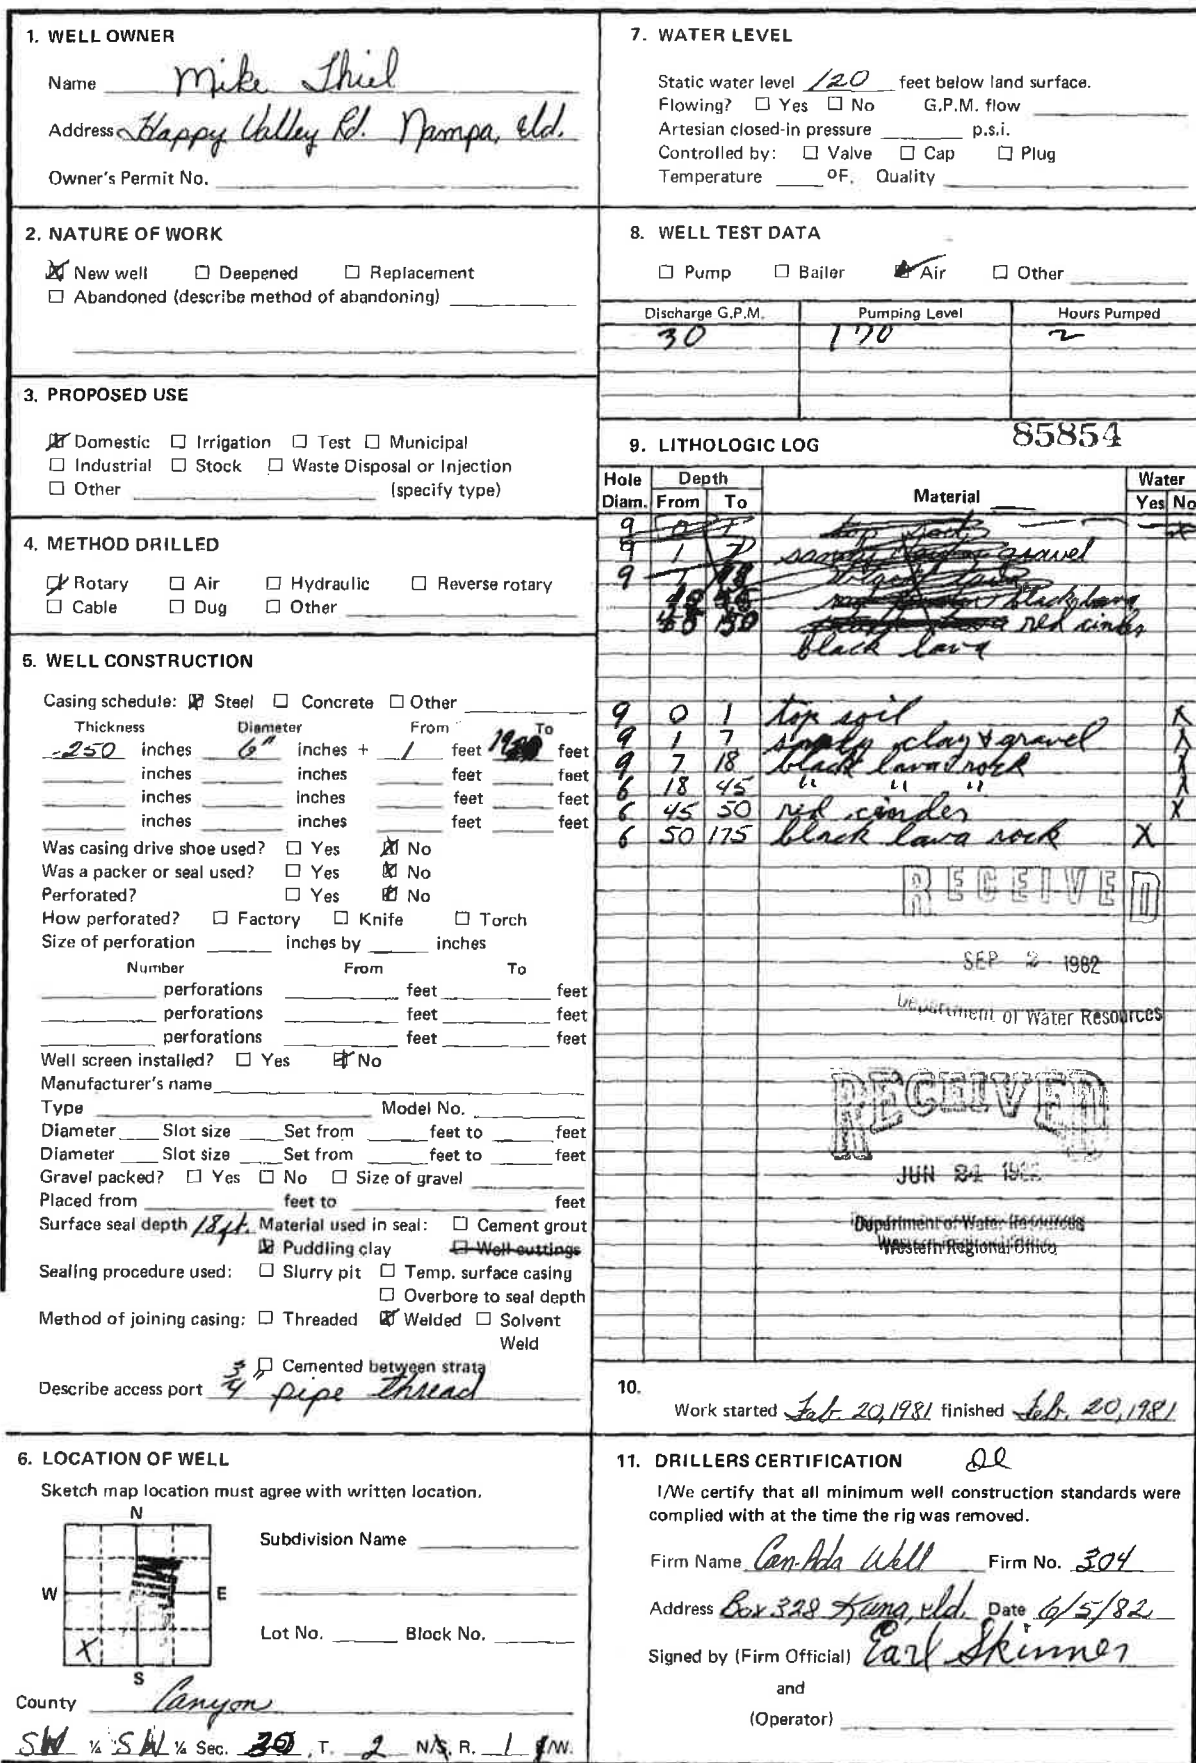 1. WELL OWNER
Name Mike Thiel
Address Happy Valley Rd. Nampa, Id.
Owner's Permit No.
2. NATURE OF WORK
New well Deepened Replacement
Abandoned (describe method of abandoning)
3. PROPOSED USE
Domestic Irrigation Test Municipal
Industrial Stock Waste Disposal or Injection
Other (specify type)
4. METHOD DRILLED
Rotary Air Hydraulic Reverse rotary
Cable Dug Other
5. WELL CONSTRUCTION
Casing schedule: Steel Concrete Other
Thickness Diameter From To
.250 inches 6" inches + 1 feet feet
inches inches feet feet
inches inches feet feet
inches inches feet feet
Was casing drive shoe used? Yes No
Was a packer or seal used? Yes No
Perforated? Yes No
How perforated? Factory Knife Torch
Size of perforation inches by inches
Number From To
perforations feet feet
perforations feet feet
perforations feet feet
Well screen installed? Yes No
Manufacturer's name
Type Model No.
Diameter Slot size Set from feet to feet
Diameter Slot size Set from feet to feet
Gravel packed? Yes No Size of gravel
Placed from feet to feet
Surface seal depth 18 ft. Material used in seal: Cement grout
Puddling clay Well cuttings
Sealing procedure used: Slurry pit Temp. surface casing
Overbore to seal depth
Method of joining casing: Threaded Welded Solvent
Weld
Cemented between strata
Describe access port 3/4" pipe thread
6. LOCATION OF WELL
Sketch map location must agree with written location.
N
Subdivision Name
W E
Lot No. Block No.
X
S
County Canyon
SW ¼ SW ¼ Sec. T. 2 N/S, R. 1 E/W.
7. WATER LEVEL
Static water level 120 feet below land surface.
Flowing? Yes No G.P.M. flow
Artesian closed-in pressure p.s.i.
Controlled by: Valve Cap Plug
Temperature °F. Quality
8. WELL TEST DATA
Pump Bailer Air Other
Discharge G.P.M. Pumping Level Hours Pumped
30 170 2
85854
9. LITHOLOGIC LOG
Hole Depth Water
Diam. From To Material Yes No
9 0 top
9 1 7 gravel
9 7 18 black lava
black lava
150 red cinder
black lava
9 0 1 top soil X
9 1 7 clay & gravel X
9 7 18 black lava rock X
6 18 45 " " " X
6 45 50 red cinder X
6 50 175 black lava rock X
RECEIVED
SEP 2 1982
Department of Water Resources
RECEIVED
JUN 1982
Department of Water Resources
Western Regional Office
10.
Work started Feb. 20, 1981 finished Feb. 20, 1981
11. DRILLERS CERTIFICATION
I/We certify that all minimum well construction standards were
complied with at the time the rig was removed.
Firm Name Can-Ada Well Firm No. 304
Address Box 328 Kuna, Id. Date 6/5/82
Signed by (Firm Official) Earl Skinner
and
(Operator)